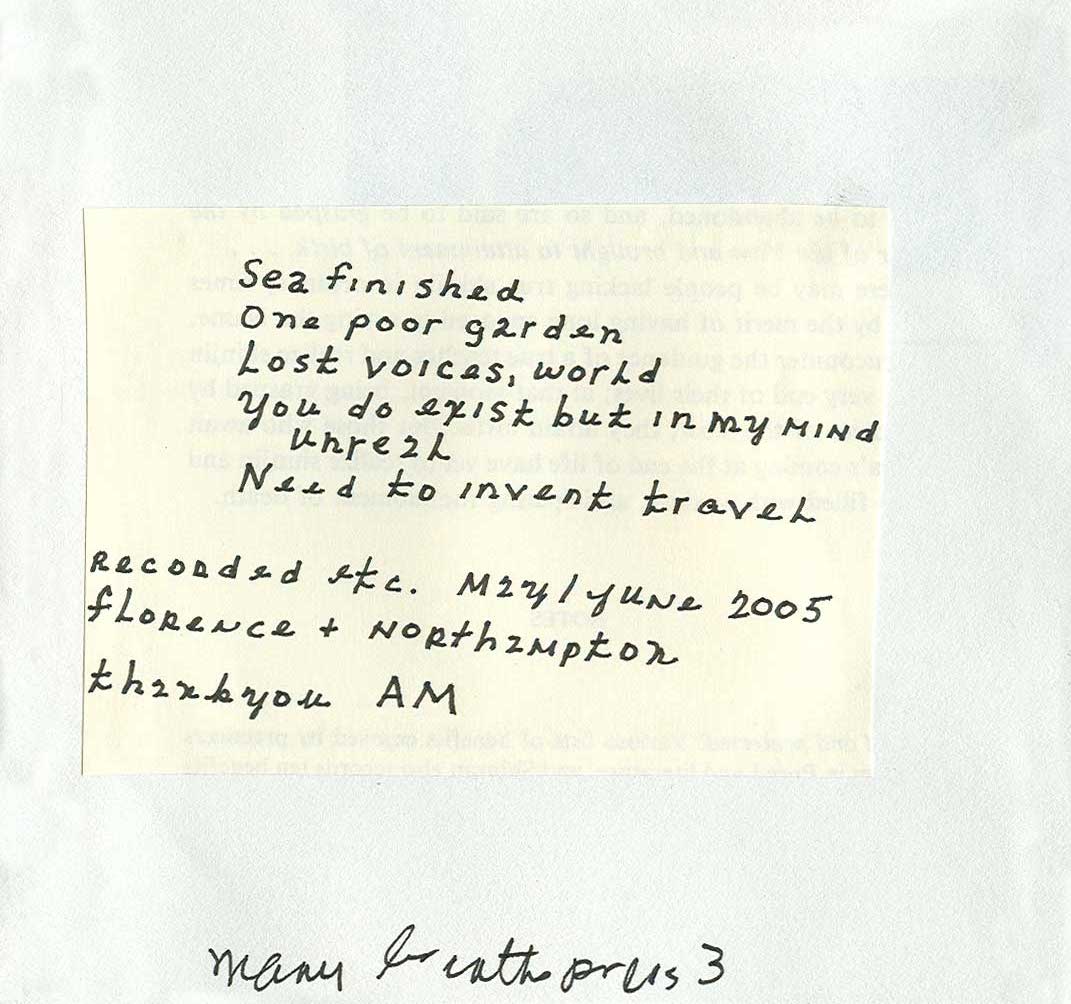 Sea finished
One poor garden
Lost voices, world
You do exist but in my mind
unreal
Need to invent travel
Recorded etc. May/June 2005
Florence + Northampton
thankyou AM
many breaths press 3